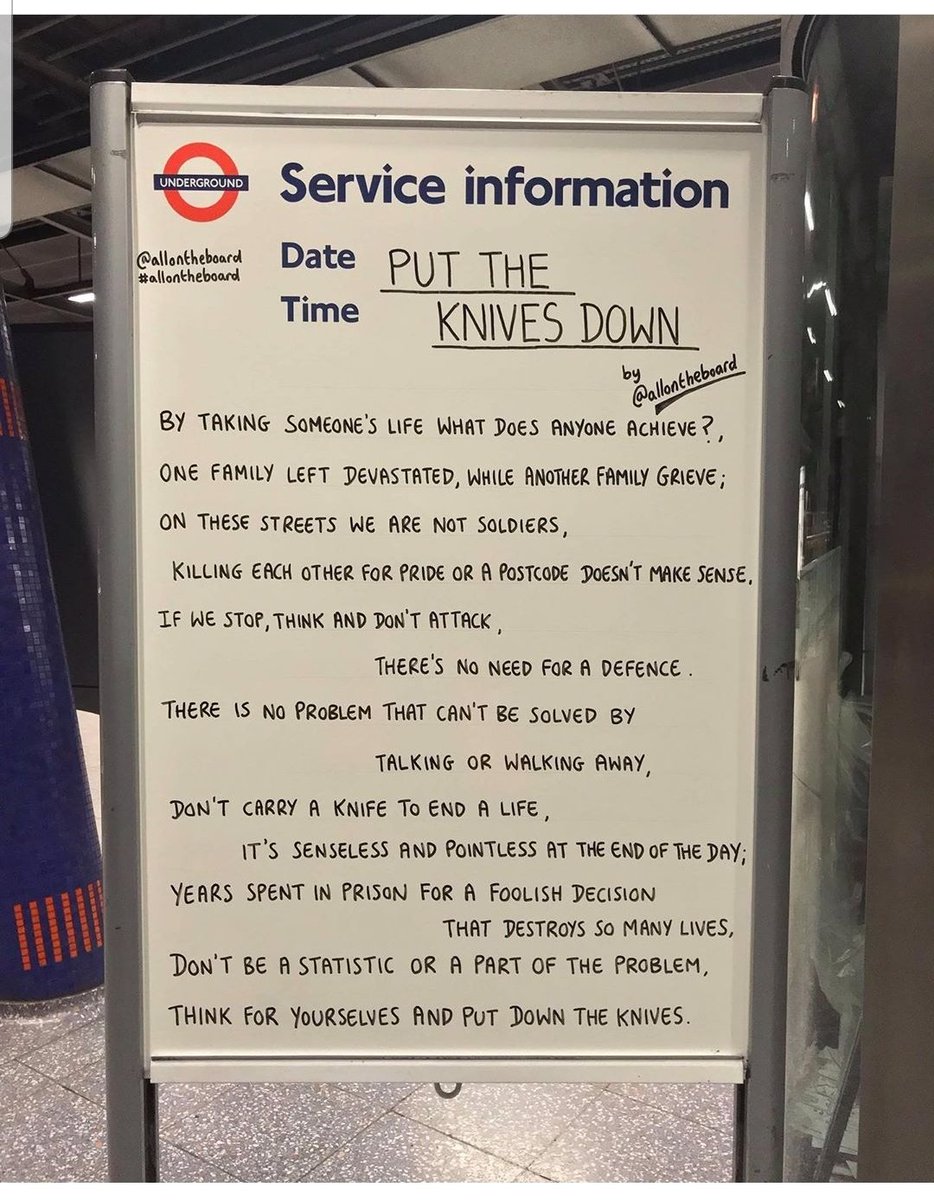 UNDERGROUND
Service information
@allontheboard
#allontheboard
Date PUT THE
Time KNIVES DOWN
by
@allontheboard
BY TAKING SOMEONE'S LIFE WHAT DOES ANYONE ACHIEVE?,
ONE FAMILY LEFT DEVASTATED, WHILE ANOTHER FAMILY GRIEVE;
ON THESE STREETS WE ARE NOT SOLDIERS,
KILLING EACH OTHER FOR PRIDE OR A POSTCODE DOESN'T MAKE SENSE.
IF WE STOP, THINK AND DON'T ATTACK,
THERE'S NO NEED FOR A DEFENCE.
THERE IS NO PROBLEM THAT CAN'T BE SOLVED BY
TALKING OR WALKING AWAY,
DON'T CARRY A KNIFE TO END A LIFE,
IT'S SENSELESS AND POINTLESS AT THE END OF THE DAY;
YEARS SPENT IN PRISON FOR A FOOLISH DECISION
THAT DESTROYS SO MANY LIVES,
DON'T BE A STATISTIC OR A PART OF THE PROBLEM,
THINK FOR YOURSELVES AND PUT DOWN THE KNIVES.